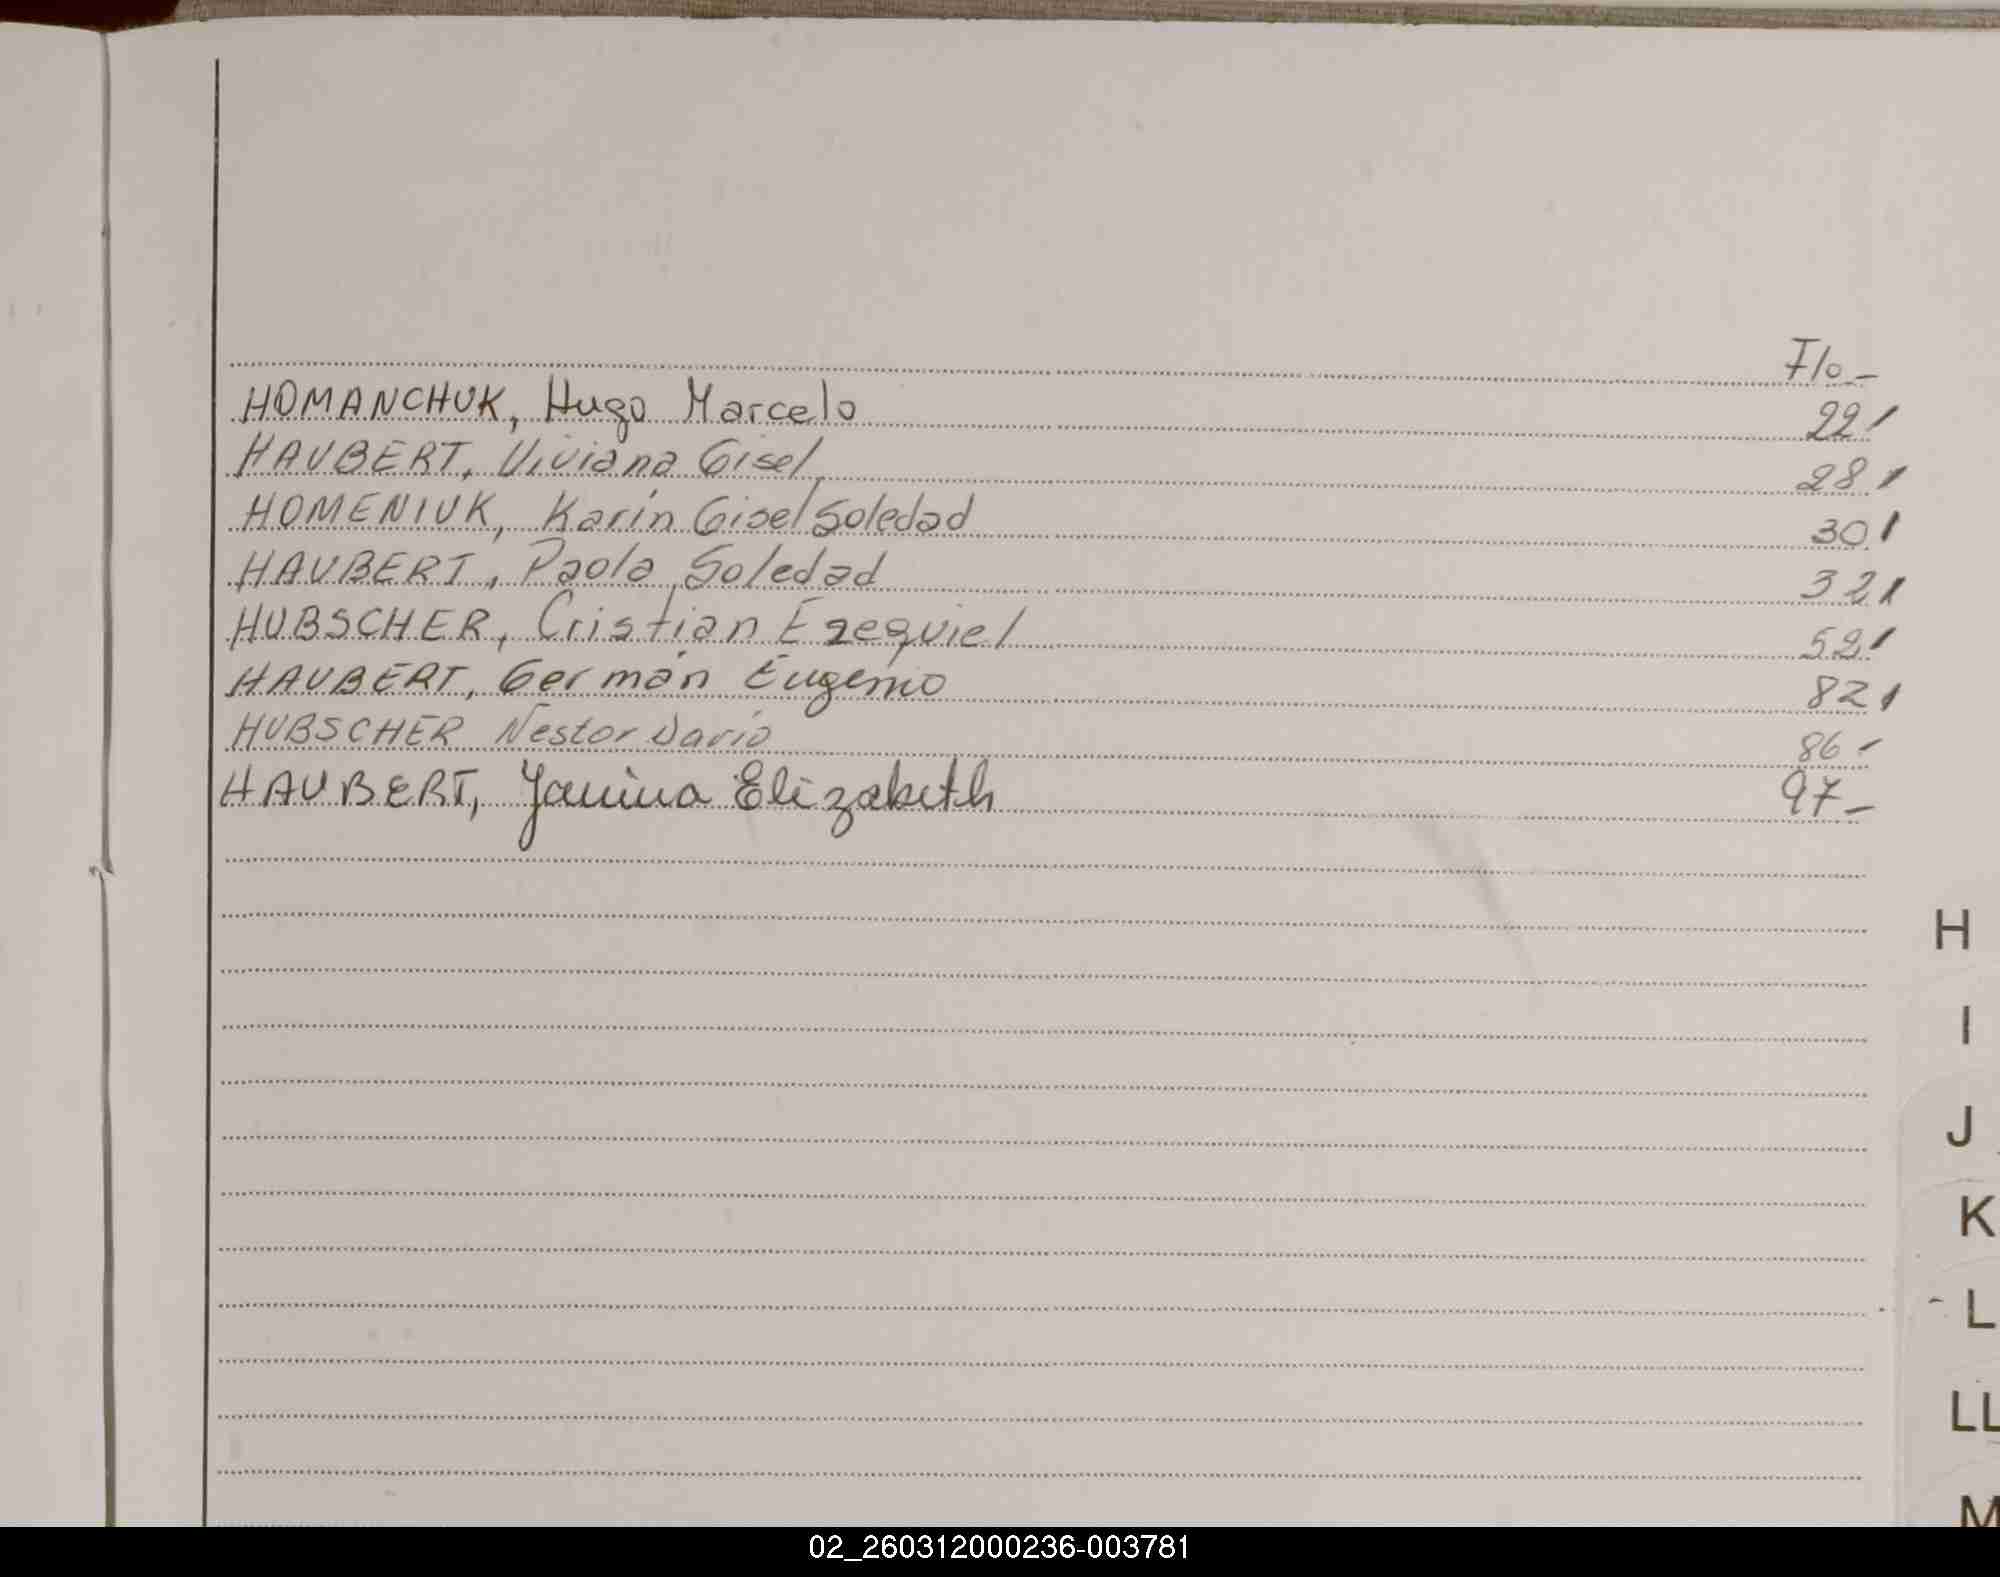 F/o-
HOMANCHUK, Hugo Marcelo 22/
HAUBERT, Viviana Gisel 28/
HOMENIUK, Karin Gisel Soledad 30/
HAUBERT, Paola Soledad 32/
HUBSCHER, Cristian Ezequiel 52/
HAUBERT, Germán Eugenio 82/
HUBSCHER Nestor Dario 86-
HAUBERT, Yanina Elizabeth 97-
H
I
J
K
L
LL
M
02_260312000236-003781